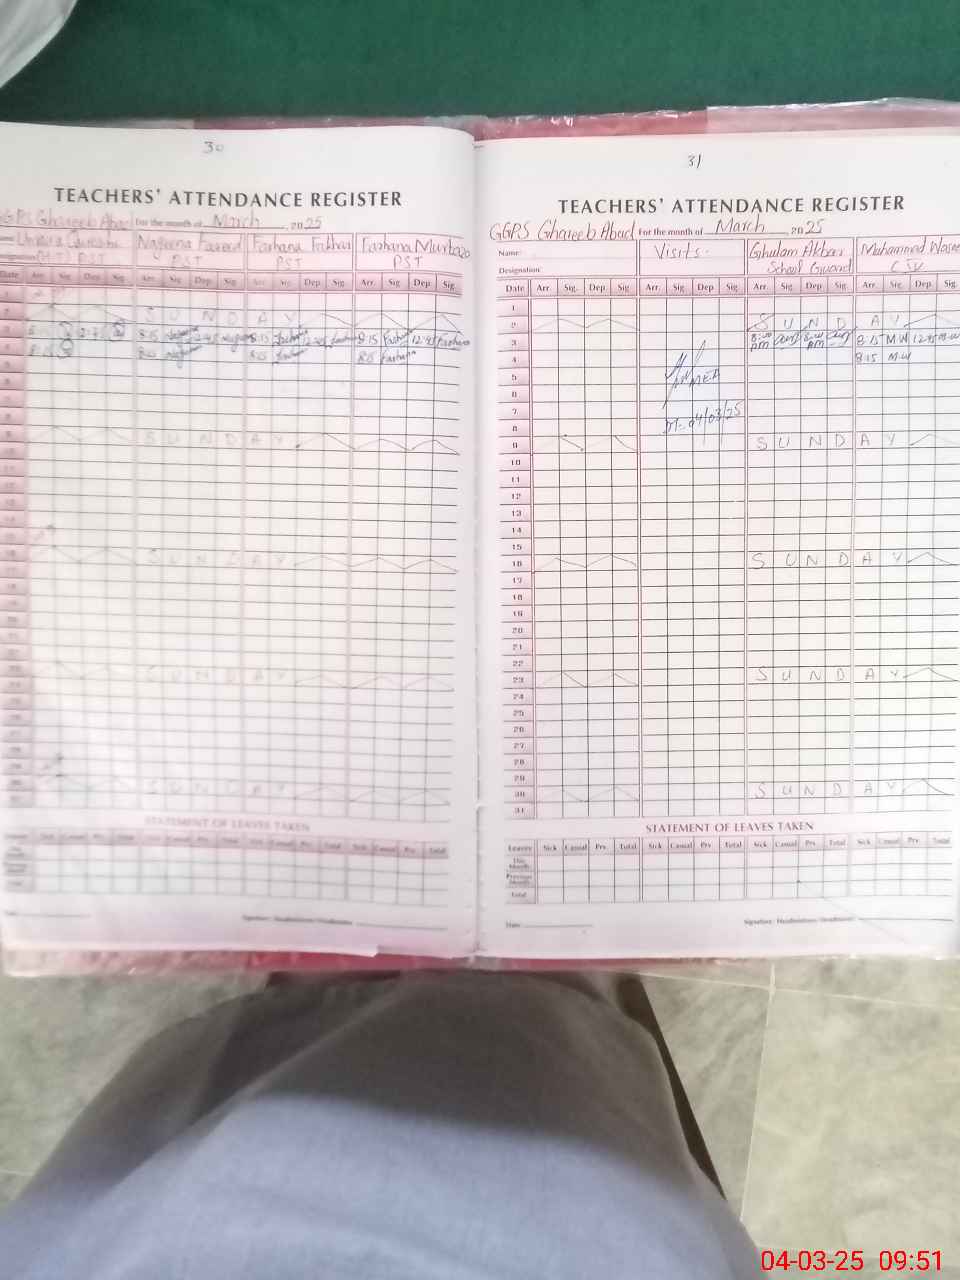 30
TEACHERS' ATTENDANCE REGISTER
GGPS Ghareeb Abad For the month of March 2025
Nageena Fareed Farhana Fakhar Farhana Murtaza
PST PST PST
Date Arr. Sig. Dep. Sig. Arr. Sig. Dep. Sig. Arr. Sig. Dep. Sig. Arr. Sig. Dep. Sig.
S U N D A Y
8:15 12:45 8:15 12:45 8:15 Farhana 12:45 Farhana
8:15 8:15 8:15 Farhana
S U N D A Y
S U N D A Y
S U N D A Y
S U N D A Y
STATEMENT OF LEAVES TAKEN
Sick Casual Prv. Total Sick Casual Prv. Total Sick Casual Prv. Total Sick Casual Prv. Total
Signature: Headmistress/Headmaster
31
TEACHERS' ATTENDANCE REGISTER
GGPS Ghareeb Abad For the month of March 2025
Name: Visits. Ghulam Akbar Muhammad
Designation: School Guard
Date Arr. Sig. Dep. Sig. Arr. Sig. Dep. Sig. Arr. Sig. Dep. Sig. Arr. Sig. Dep. Sig.
1
2 S U N D A Y
3 8:00 pm 8:00 AM 8:15 M.W 12:45 M.W
4 8:15 M.W
5 MEA
6
7 DT:- 04/03/25
8
9 S U N D A Y
10
11
12
13
14
15
16 S U N D A Y
17
18
19
20
21
22
23 S U N D A Y
24
25
26
27
28
29
30 S U N D A Y
31
STATEMENT OF LEAVES TAKEN
Leaves Sick Casual Prv. Total Sick Casual Prv. Total Sick Casual Prv. Total Sick Casual Prv. Total
This Month
Previous Month
Total
Date: Signature: Headmistress/Headmaster
04-03-25 09:51